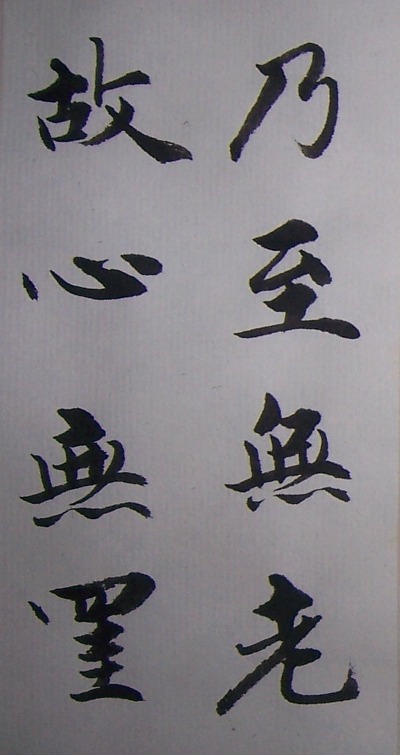 乃至無老
故心無罣